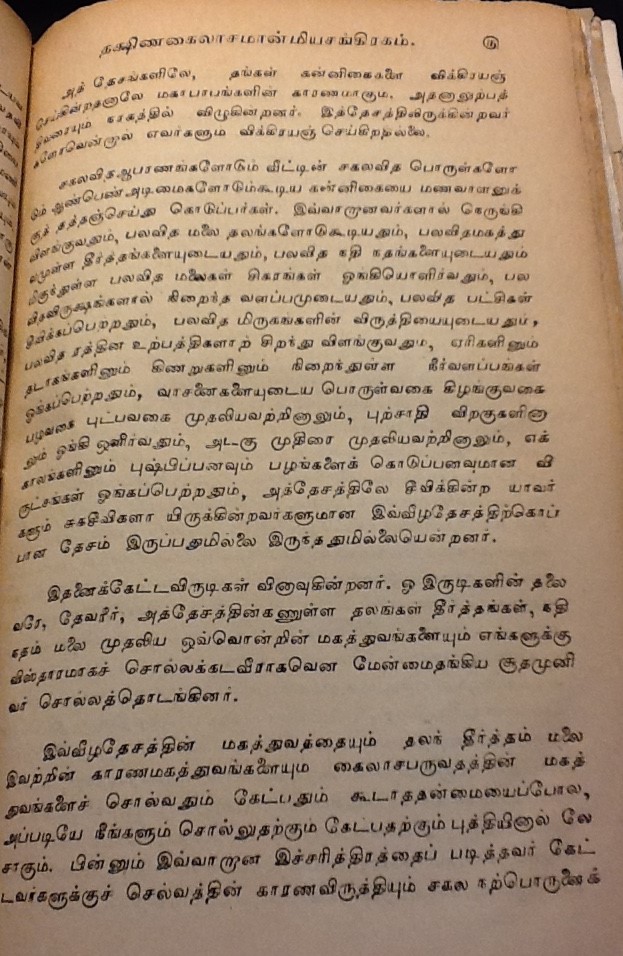 தக்ஷிணகைலாசமான்மியசங்கிரகம். ௫
அத் தேசங்களிலே, தங்கள் கன்னிகைகளை விக்கிரயஞ்
செய்கின்றதனாலே மகாபாபங்களின் காரணமாகும். அதனாலுற்பத்
திவரையும் நரகத்தில் விழுகின்றனர். இத்தேசத்திலிருக்கின்றவர்
களோவென்றால் எவர்களும் விக்கிரயஞ் செய்கிறதில்லை.
சகலவிதஆபரணங்களோடும் வீட்டின் சகலவித பொருள்களோ
டும் ஆண்பெண்அடிமைகளோடும்கூடிய கன்னிகையை மணவாளனுக்
குத் தத்தஞ்செய்து கொடுப்பர்கள். இவ்வாறானவர்களால் நெருங்கி
விளங்குவதும், பலவித மலை தலங்களோடுகூடியதும், பலவிதமகத்து
வமுள்ள தீர்த்தங்களையுடையதும், பலவித நதி நதங்களையுடையதும்
மிகுந்துள்ள பலவித மலைகள் கொங்கள் ஓங்கியொளிர்வதும், பல
விதவிருக்ஷங்களால் நிறைந்த வளப்பமுடையதும், பலவித பட்சிகள்
சீவிக்கப்பெற்றதும், பலவித மிருகங்களின் விருத்தியையுடையதும்,
பலவித ரத்தின உற்பத்திகளாற் சிறந்து விளங்குவதும், ஏரிகளினும்
தடாகங்களினும் கிணறுகளினும் நிறைந்துள்ள நீர்வளப்பங்கள்
ஓங்கப்பெற்றதும், வாசனைகளையுடைய பொருள்வகை கிழங்குவகை
பழவகை புட்பவகை முதலியவற்றினாலும், புற்சாதி விறகுகளினா
லும் ஓங்கி ஒளிர்வதும், அடகு முதிரை முதலியவற்றினாலும், எக்
காலங்களினும் புஷ்பிப்பனவும் பழங்களைக் கொடுப்பனவுமான வி
ருட்சங்கள் ஓங்கப்பெற்றதும், அத்தேசத்திலே சீவிக்கின்ற யாவர்
களும் சுகசீவிகளா யிருக்கின்றவர்களுமான இவ்வீழதேசத்திற்கொப்
பான தேசம் இருப்பதுமில்லை இருந்ததுமில்லையென்றனர்.
இதனைக்கேட்டவிருடிகள் வினாவுகின்றனர். ஓ இருடிகளின் தலை
வரே, தேவரீர், அத்தேசத்தின்கணுள்ள தலங்கள் தீர்த்தங்கள், நதி
நதம் மலை முதலிய ஒவ்வொன்றின் மகத்துவங்களையும் எங்களுக்கு
விஸ்தாரமாகச் சொல்லக்கடவீராகவென மேன்மைதங்கிய சூதமுனி
வர் சொல்லத்தொடங்கினர்.
இவ்வீழதேசத்தின் மகத்துவத்தையும் தலந் தீர்த்தம் மலை
இவற்றின் காரணமகத்துவங்களையும் கைலாசபருவதத்தின் மகத்
துவங்களைச் சொல்வதும் கேட்பதும் கூடாததன்மையைப்போல,
அப்படியே நீங்களும் சொல்லுதற்கும் கேட்பதற்கும் புத்தியினால் லே
சாகும். பின்னும் இவ்வாறான இச்சரித்திரத்தைப் படித்தவர் கேட்
டவர்களுக்குச் செல்வத்தின் காரணவிருத்தியும் சகல நற்பொருளைக்